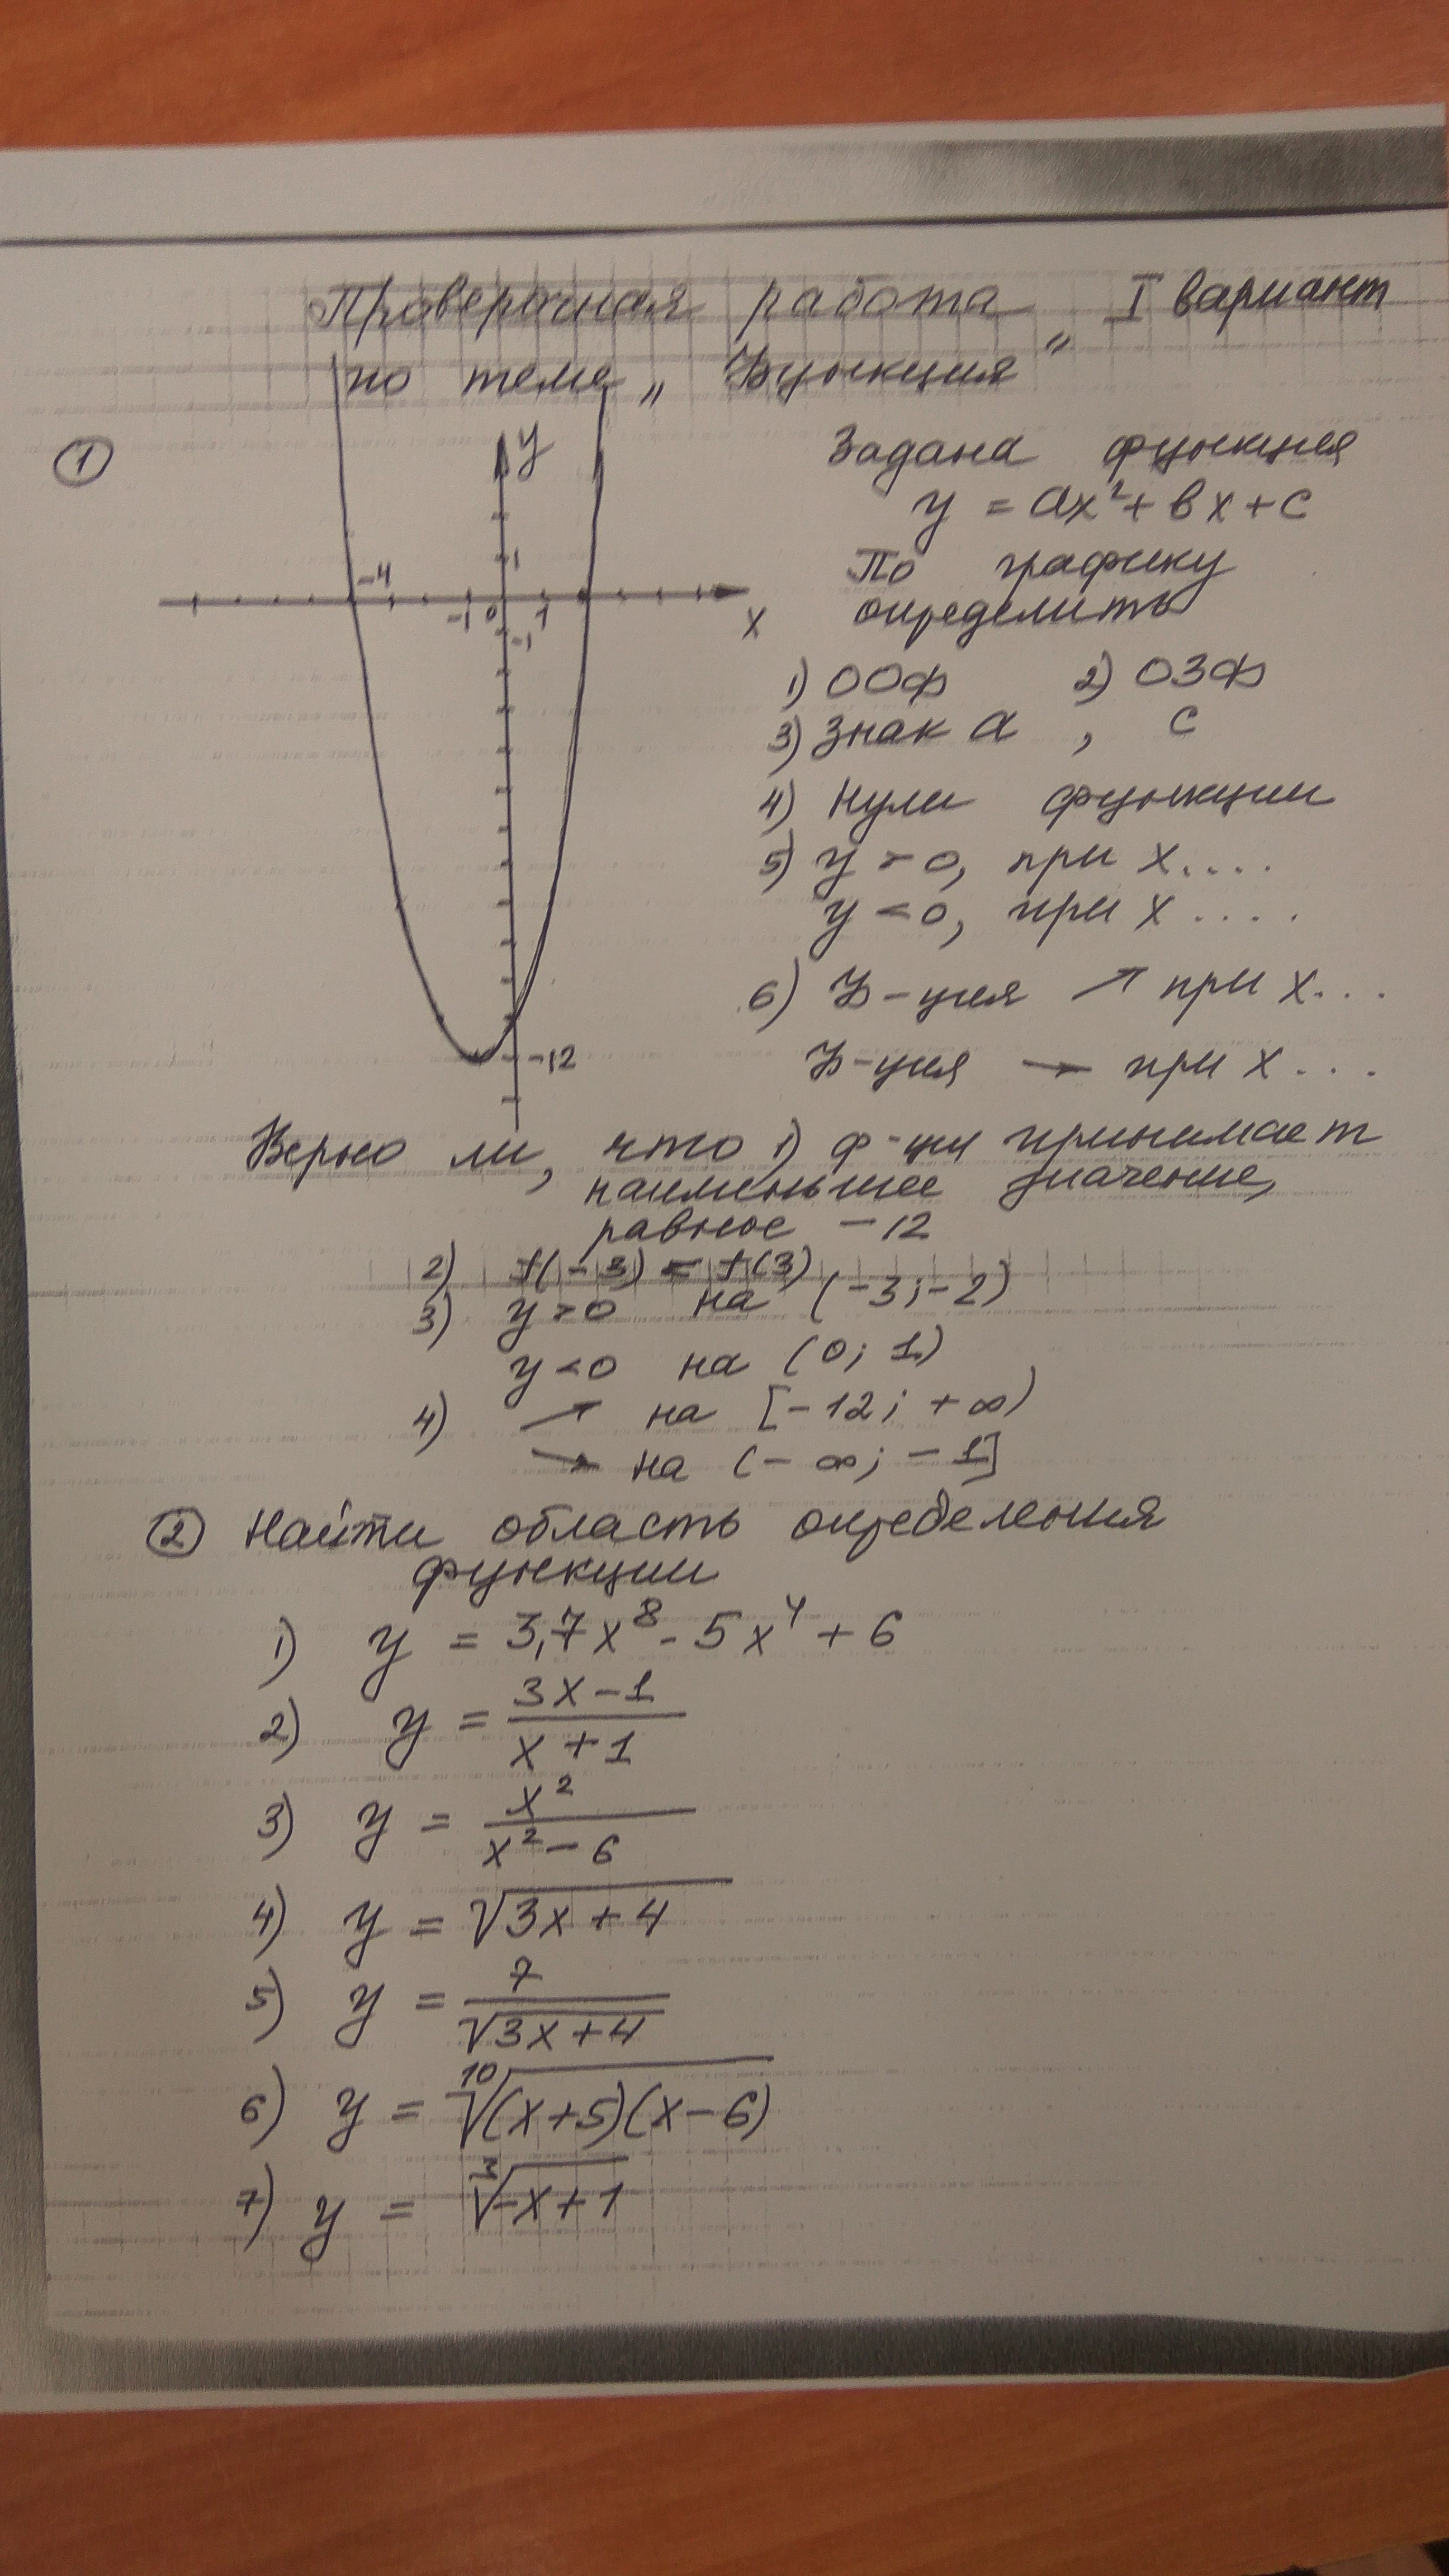 Проверочная работа I вариант
по теме „Функция"
① Задана функция
y = ax² + bx + c
По графику
определить
1) ООФ 2) ОЗФ
3) Знак a, c
4) Нули функции
5) y > 0, при x....
y < 0, при x....
6) Ф-ция ↗ при x...
Ф-ция → при x...
y
1
-4
-1 0 1
x
-1
-12
Верно ли, что 1) ф-ция принимает
наименьшее значение,
равное -12
2) f(-3) < f(3)
3) y > 0 на (-3; -2)
y < 0 на (0; 1)
4) ↗ на [-12; +∞)
↘ на (-∞; -1]
② Найти область определения
функции
1) y = 3,7x⁸ - 5x⁴ + 6
2) y = (3x - 1)/(x + 1)
3) y = x²/(x² - 6)
4) y = √(3x + 4)
5) y = 7/√(3x + 4)
6) y = ¹⁰√((x+5)(x-6))
7) y = ³√(-x+1)